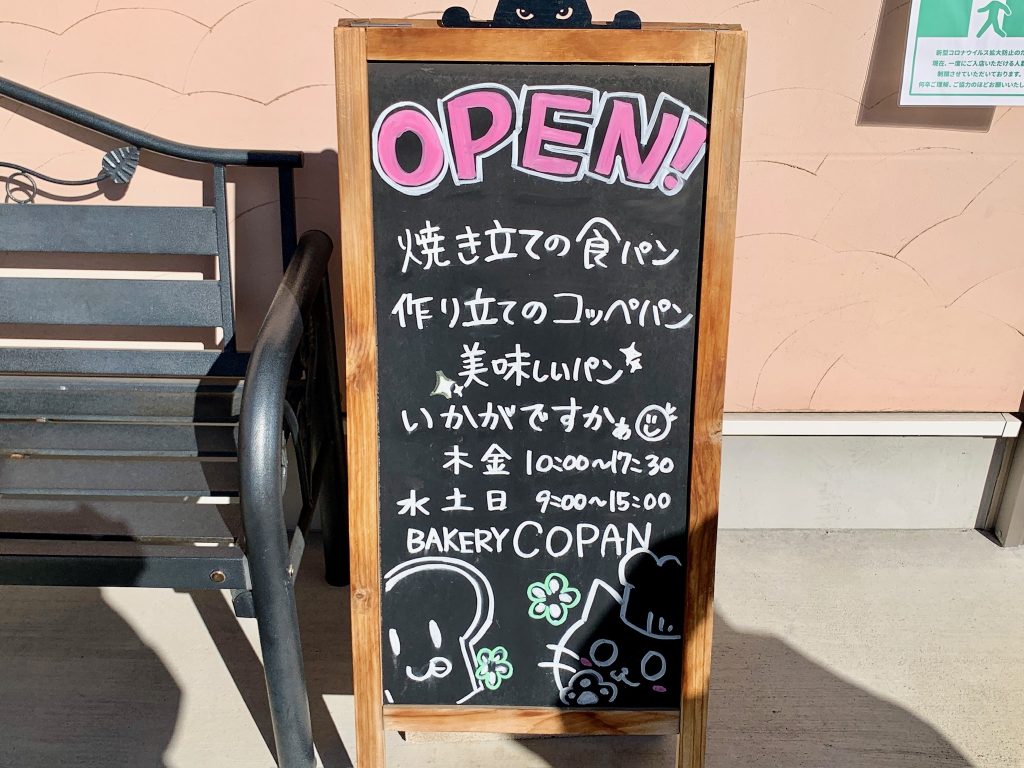 OPEN!
焼き立ての食パン
作り立てのコッペパン
美味しいパン
いかがですかぁ
木金 10:00〜17:30
水土日 9:00〜15:00
BAKERY COPAN
新型コロナウイルス拡大防止のた
現在、一度にご入店いただける人数
制限させていただいております。
何卒ご理解、ご協力のほどお願いいたし